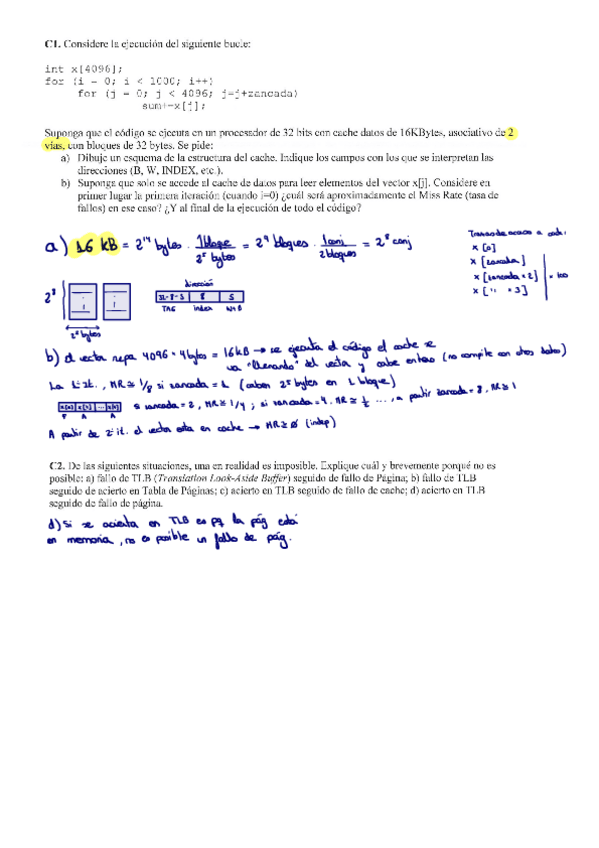 C1. Considere la ejecución del siguiente bucle:
int x[4096];
for (i = 0; i < 1000; i++)
for (j = 0; j < 4096; j=j+zancada)
sum+=x[j];
Suponga que el código se ejecuta en un procesador de 32 bits con cache datos de 16KBytes, asociativo de 2
vías, con bloques de 32 bytes. Se pide:
a) Dibuje un esquema de la estructura del cache. Indique los campos con los que se interpretan las
direcciones (B, W, INDEX, etc.).
b) Suponga que solo se accede al cache de datos para leer elementos del vector x[j]. Considere en
primer lugar la primera iteración (cuando i=0) ¿cuál será aproximadamente el Miss Rate (tasa de
fallos) en ese caso? ¿Y al final de la ejecución de todo el código?
a) 16 kB = 2^14 bytes · 1 bloque / 2^5 bytes = 2^9 bloques · 1 conj / 2 bloques = 2^8 conj
x [0]
x [zancada]
x [zancada * 2]
x [ " * 3]
2^8
dirección
32-8-5 8 5
TAG index W+B
2^5 bytes
b) el vector ocupa 4096 * 4 bytes = 16kB → se ejecuta el código el cache se
va "llenando" del vector y cabe entero (no compite con otros datos)
La 1ª it., MR ≅ 1/8 si zancada = 1 (caben 2^5 bytes en 1 bloque)
x[0] x[1] ... x[7] si zancada = 2, MR ≅ 1/4; si zancada = 4, MR ≅ 1/2 ..., a partir zancada = 8, MR ≅ 1
F A A
A partir de 2ª it. el vector esta en cache → MR ≅ 0 (indep)
C2. De las siguientes situaciones, una en realidad es imposible. Explique cuál y brevemente porqué no es
posible: a) fallo de TLB (Translation Look-Aside Buffer) seguido de fallo de Página; b) fallo de TLB
seguido de acierto en Tabla de Páginas; c) acierto en TLB seguido de fallo de cache; d) acierto en TLB
seguido de fallo de página.
d) Si se acierta en TLB es pq la pág está
en memoria, no es posible un fallo de pág.